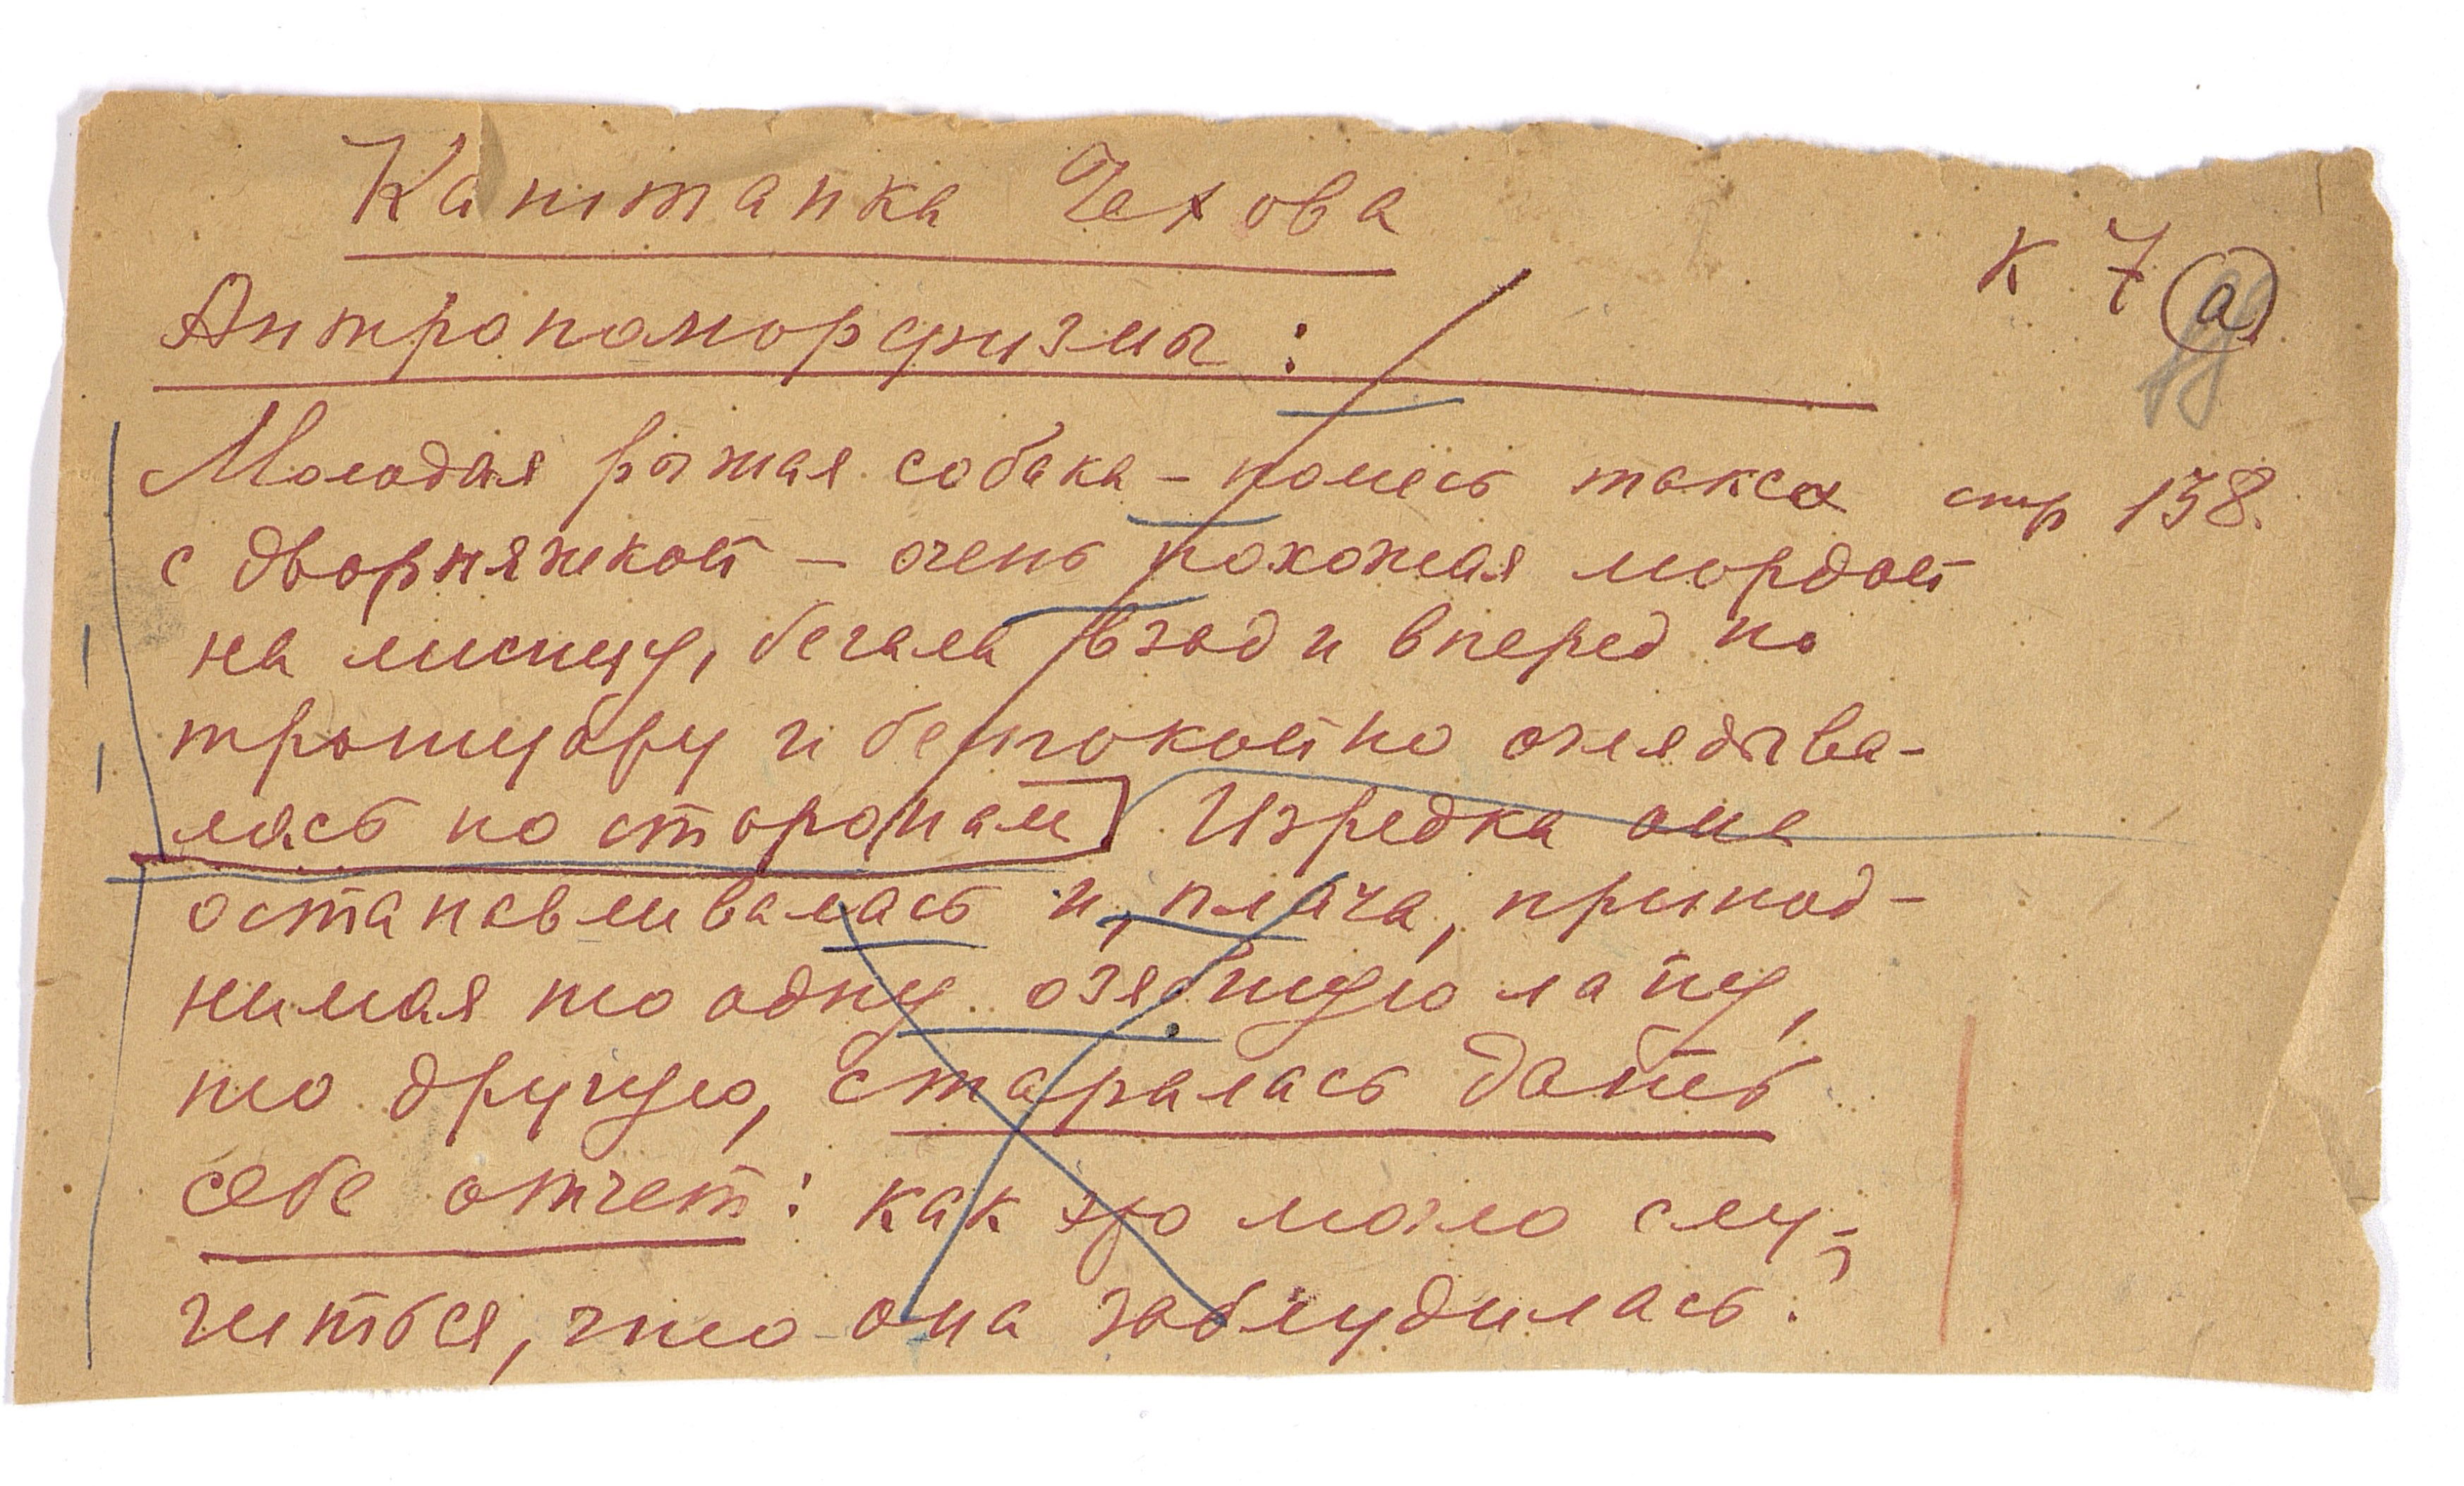 Каштанка Чехова
к 7 а
Антропоморфизмы:
Молодая рыжая собака – помесь такса стр 158.
с дворняжкой – очень похожая мордой
на лисицу, бегала взад и вперед по
тротуару и беспокойно оглядыва-
лась по сторонам] Изредка она
останавливалась и, плача, припод-
нимая то одну озябшую лапу,
то другую, старалась дать
себе отчет: как это могло слу-
читься, что она заблудилась?